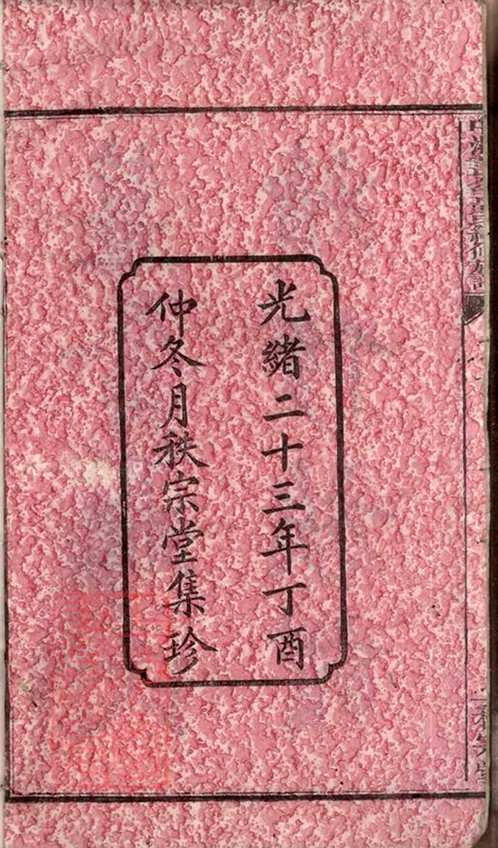 光緒二十三年丁酉
仲冬月秩宗堂集珍